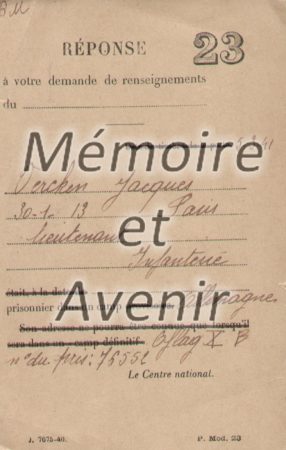 BM
RÉPONSE 23
à votre demande de renseignements
du
Mémoire
Vercken Jacques
30-1-13 Paris
et
lieutenant
Infanterie
était, à la date
Avenir
prisonnier dans un camp Allemagne
Son adresse ne pourra être connue que lorsqu'il
sera dans un camp définitif. Oflag X B
n° du pris: 76552
Le Centre national.
J. 7675-40. P. Mod. 23